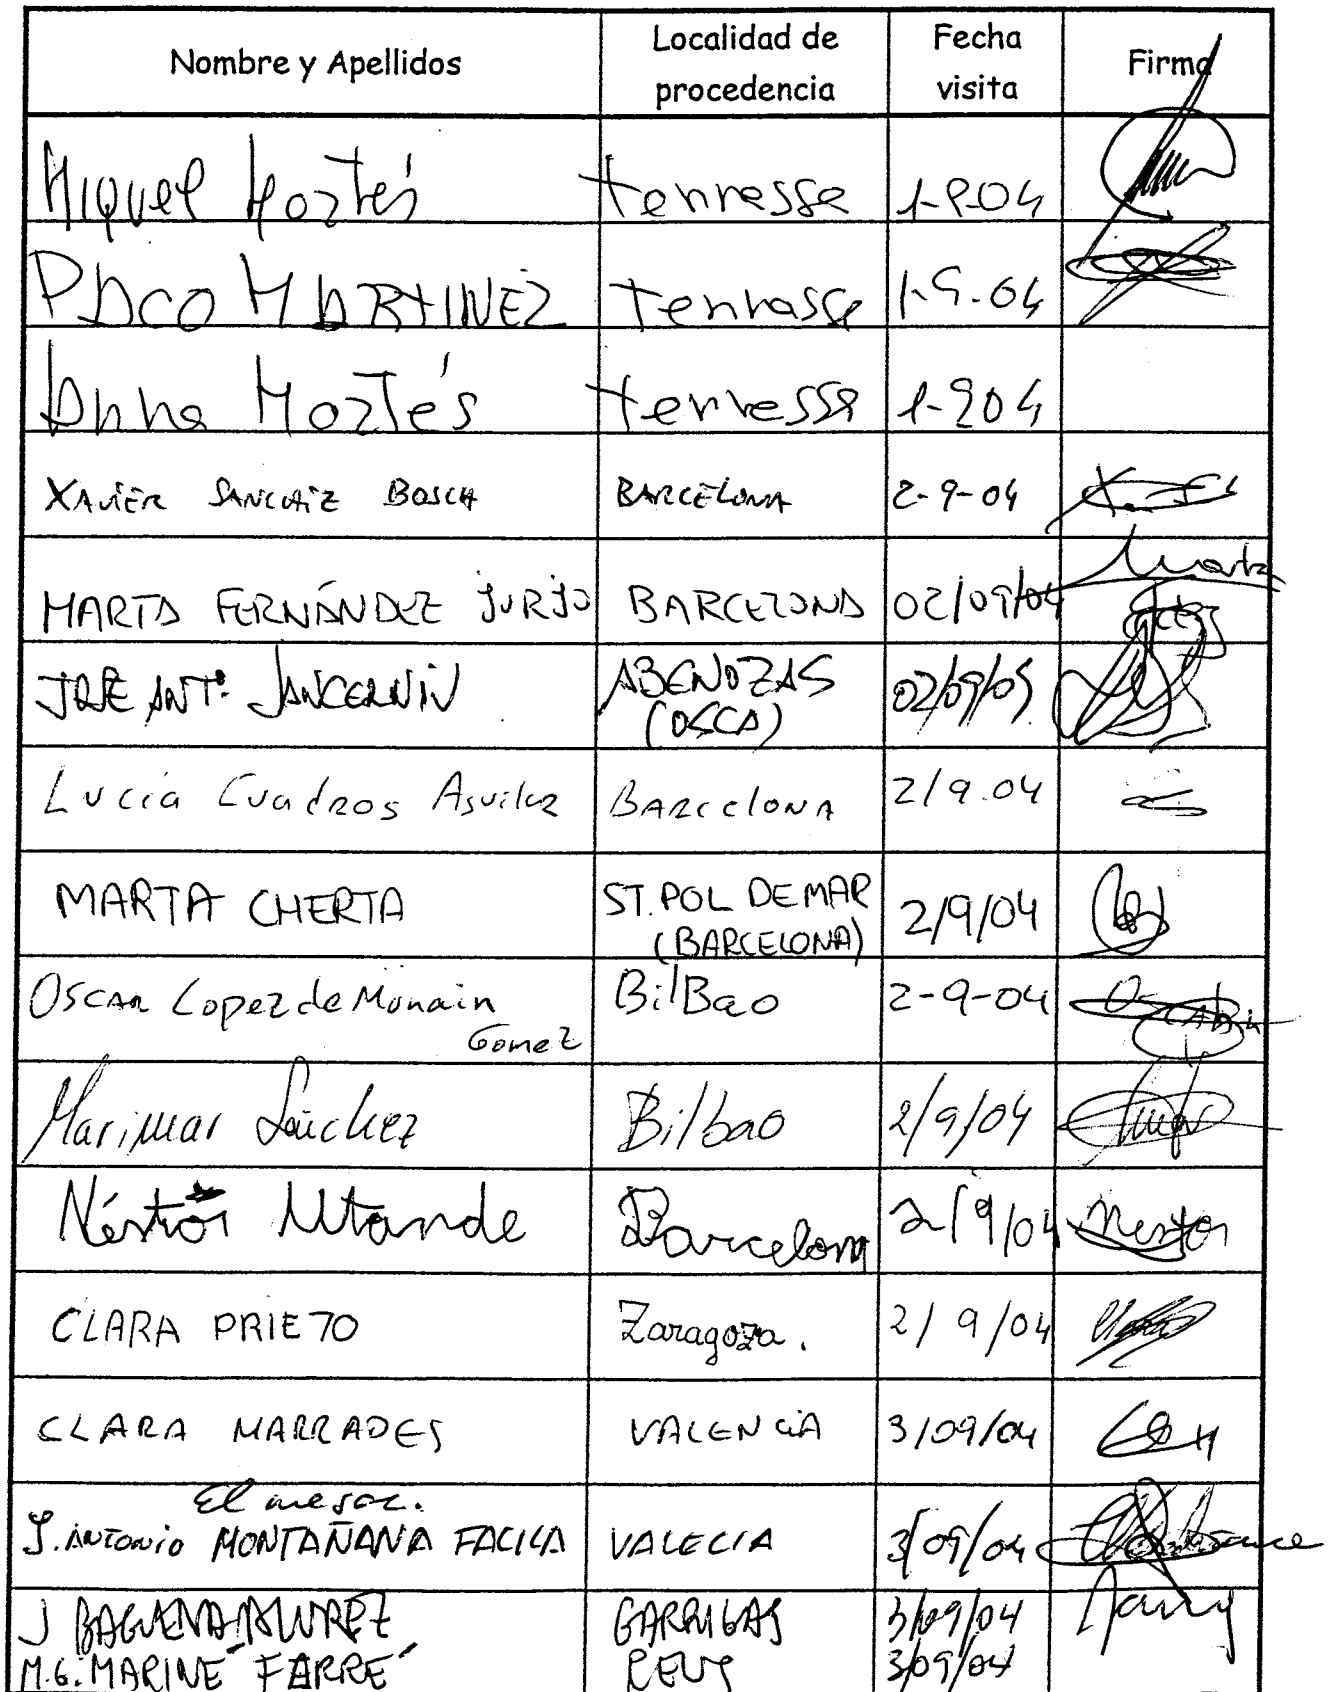 Nombre y Apellidos Localidad de procedencia Fecha visita Firma
Miquel Mortés terressa 1-9-04
PACO MARTINEZ terrassa 1-9-04
Anna Mortés terressa 1-904
XAVIER SANCHIZ BOSCH BARCELONA 2-9-04
MARTA FERNÁNDEZ JURJO BARCELONA 02/09/04 Marta
JOSE ANTº. SANCERNIN ABENOZAS (OSCA) 02/09/05
Lucía Cuadros Aguilar BARCELONA 2/9.04
MARTA CHERTA ST. POL DE MAR (BARCELONA) 2/9/04
OSCAR Lopez de Monain Gomez BilBao 2-9-04
Marimar Sánchez Bilbao 2/9/04
Néstor Altande Barcelona 2/9/04 Nestor
CLARA PRIETO Zaragoza. 2/9/04
CLARA MARRADES VALENCIA 3/09/04
El mesac.
J. ANTONIO MONTAÑANA FACILA VALECIA 3/09/04
J BAGUENA GARRIGAS 3/09/04
M.G. MARINÉ FARRÉ REUS 3/09/04